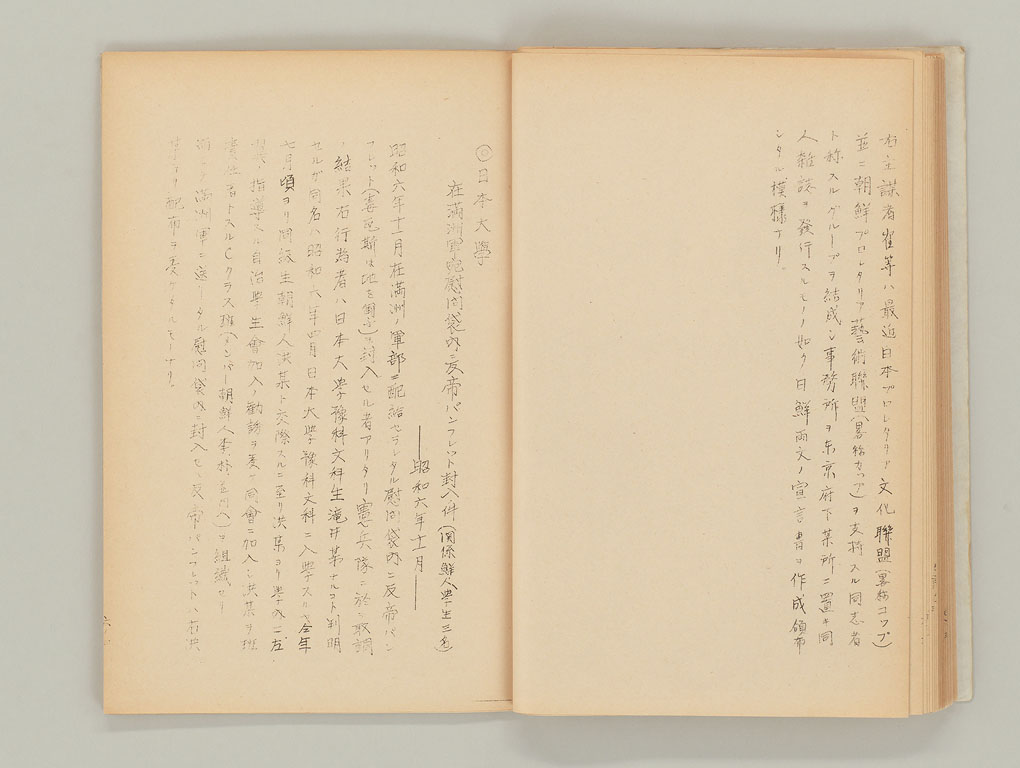 右主謀者崔等ハ最近日本プロレタリア文化聯盟(畧称コップ)
並ニ朝鮮プロレタリア藝術聯盟(畧称カップ)ヲ支持スル同志者
ト称スルグループヲ結成シ事務所ヲ東京府下某所ニ置キ同
人雜誌ヲ發行スルモノノ如ク日鮮両文ノ宣言書ヲ作成領布
シタル模様ナリ、
◎日本大學
在滿洲軍宛慰问袋内ニ反帝パンフレット封入件(関係鮮人學生三名)
――昭和六年十一月――
昭和六年十一月在滿洲ノ軍部ニ配給セラレタル慰问袋内ニ反帝パン
フレット( )ヲ封入セル者アリタリ憲兵隊ニ於テ取調
ノ結果右行為者ハ日本大學豫科文科生滝沢某ナルコト判明
セルガ同名ハ昭和六年四月日本大學豫科文科ニ入學スルヤ今年
七月頃ヨリ同級生朝鮮人洪某ト交際スルニ至リ洪某ヨリ學内ニ左
指導スル自治學生會加入ノ勧誘ヲ受ケ同會ニ加入シ洪某ヲ班
責任者トスルCクラス班(メンバー朝鮮人李、朴、 )ヲ組織セリ
而シテ滿洲軍ニ送リタル慰问袋内ニ封入セシ反帝パンフレットハ右洪
某ヨリ配布ヲ受ケタルモノナリ、